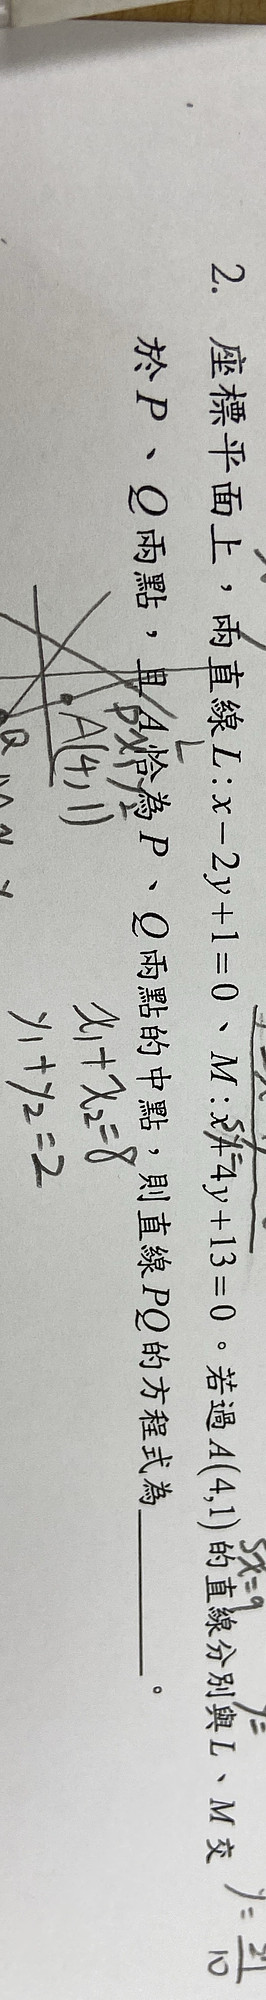 2. 座標平面上，兩直線L：x－2y＋1＝0、M：x＋4y＋13＝0。若過A(4,1)的直線分別與L、M交
於P、Q兩點，且A恰為P、Q兩點的中點，則直線PQ的方程式為＿＿＿＿＿＿。
5x=9
y=
y=21/10
L
A(4,1)
Q
x₁+x₂=8
y₁+y₂=2